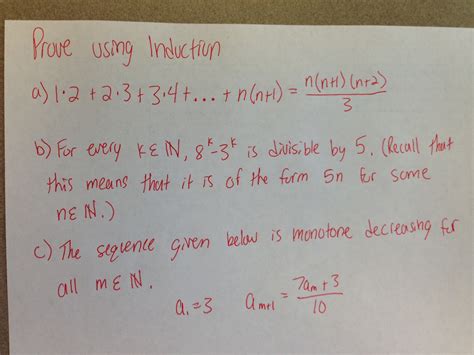 Prove using Induction
a) 1·2 + 2·3 + 3·4 + ... + n(n+1) = n(n+1)(n+2)/3
b) For every k∈ℕ, 8^k-3^k is divisible by 5. (Recall that
this means that it is of the form 5n for some
n∈ℕ.)
c) The sequence given below is monotone decreasing for
all m∈ℕ.
a₁=3 aₘ₊₁ = (7aₘ+3)/10